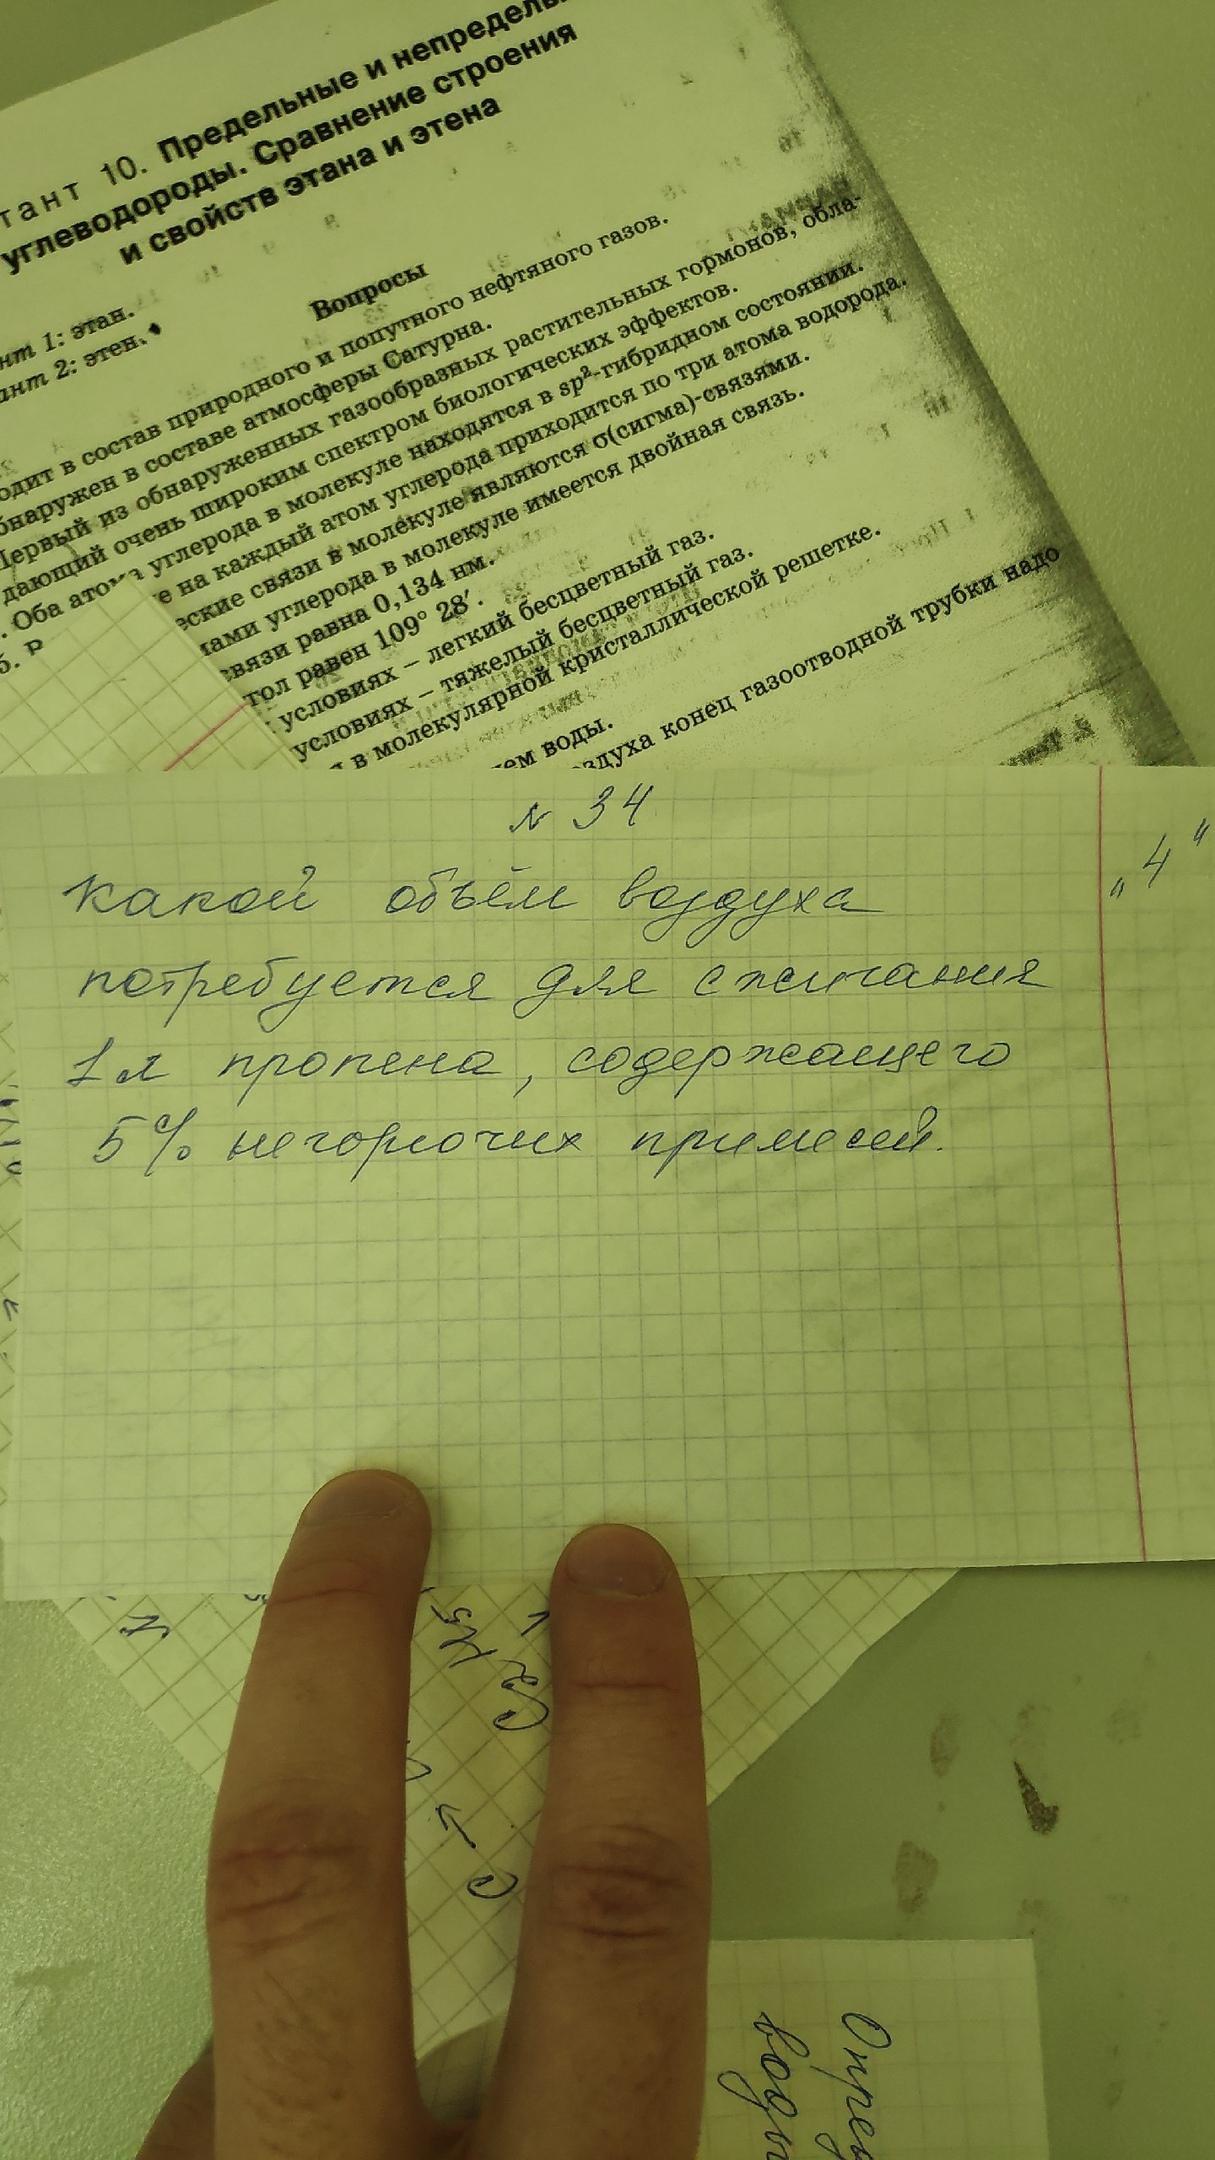 тант 10. Предельные и непредель
углеводороды. Сравнение строения
и свойств этана и этена
нт 1: этан.
ант 2: этен.
Вопросы
одит в состав природного и попутного нефтяного газов.
бнаружен в составе атмосферы Сатурна.
Первый из обнаруженных газообразных растительных гормонов, обла-
дающий очень широким спектром биологических эффектов.
. Оба атома углерода в молекуле находятся в sp²-гибридном состоянии.
5. е на каждый атом углерода приходится по три атома водорода.
еские связи в молекуле являются σ(сигма)-связями.
лами углерода в молекуле имеется двойная связь.
связи равна 0,134 нм.
гол равен 109° 28′.
условиях – легкий бесцветный газ.
условиях – тяжелый бесцветный газ.
в молекулярной кристаллической решетке.
ем воды.
здуха конец газоотводной трубки надо
N 34
"4"
Какой объём воздуха
потребуется для сжигания
1 л пропена, содержащего
5% негорючих примесей.
Опре
воды